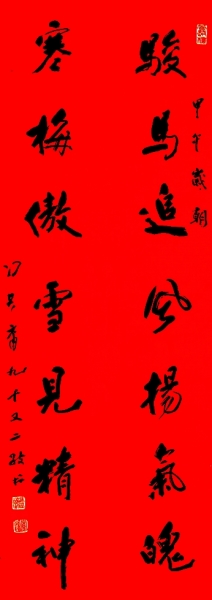 甲午歲朝
駿馬追風揚氣魄
寒梅傲雪見精神
冯其庸九十又二敬